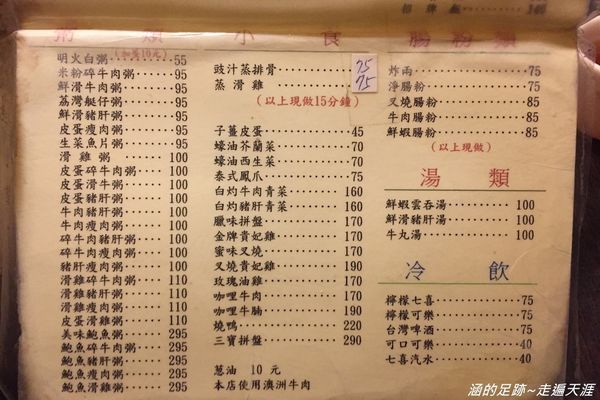 招牌
160
粥類
明火白粥 (加蛋10元) 55
米粉碎牛肉粥 95
鮮滑牛肉粥 95
荔灣艇仔粥 95
鮮滑豬肝粥 95
皮蛋瘦肉粥 95
生菜魚片粥 95
滑雞粥 100
皮蛋碎牛肉粥 100
皮蛋滑牛粥 100
皮蛋豬肝粥 100
牛肉豬肝粥 100
牛肉瘦肉粥 100
碎牛豬肝粥 100
碎牛瘦肉粥 100
豬肝瘦肉粥 100
滑雞碎牛肉粥 110
滑雞豬肝粥 110
滑雞瘦肉粥 110
皮蛋滑雞粥 110
美味鮑魚粥 295
鮑魚碎牛肉粥 295
鮑魚豬肝粥 295
鮑魚瘦肉粥 295
鮑魚滑雞粥 295
小食
豉汁蒸排骨 75
蒸滑雞 75
(以上現做15分鐘)
子薑皮蛋 45
蠔油芥蘭菜 70
蠔油西生菜 70
泰式鳳爪 75
白灼牛肉青菜 160
白灼豬肝青菜 160
臘味拼盤 170
金牌貴妃雞 170
蜜味叉燒 170
叉燒貴妃雞 190
玫瑰油雞 170
咖哩牛肉 170
咖哩牛腩 190
燒鴨 220
三寶拼盤 290
蔥油 10元
本店使用澳洲牛肉
腸粉類
炸兩 75
淨腸粉 75
叉燒腸粉 85
牛肉腸粉 85
鮮蝦腸粉 85
(以上現做)
湯類
鮮蝦雲吞湯 100
鮮滑豬肝湯 100
牛丸湯 100
冷飲
檸檬七喜 75
檸檬可樂 75
台灣啤酒 75
可口可樂 40
七喜汽水 40
涵的足跡~走遍天涯